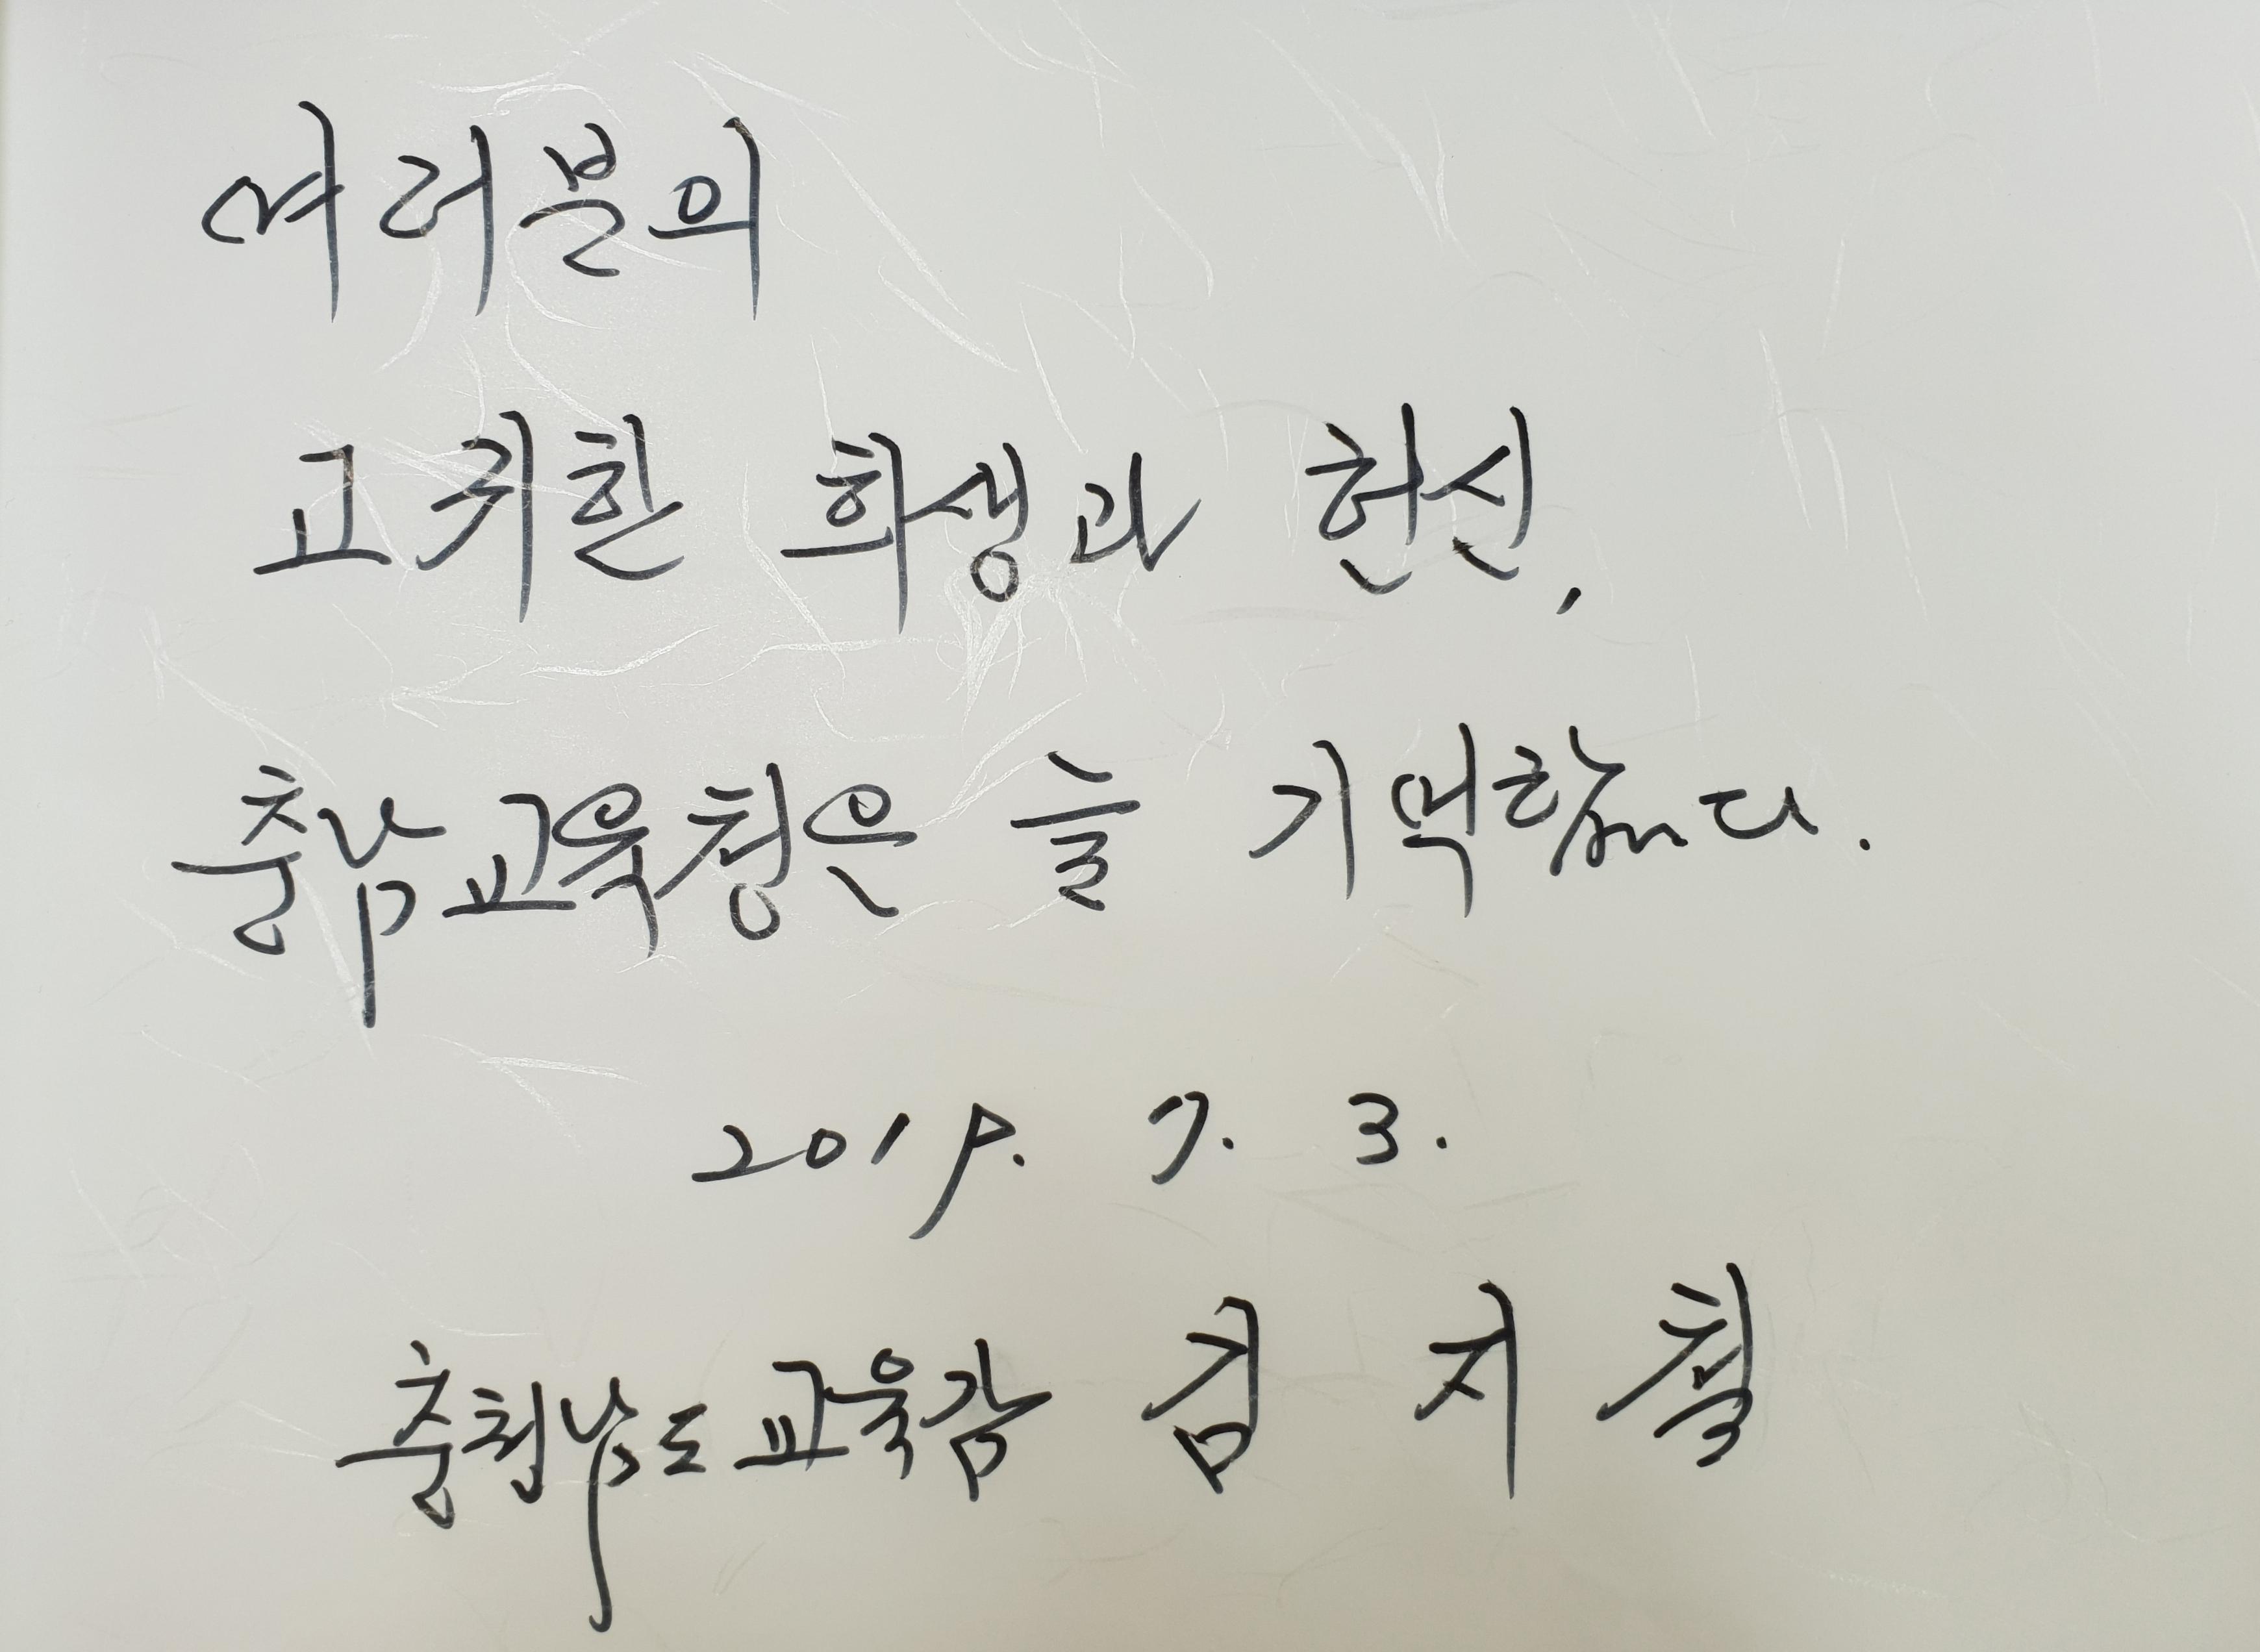 여러분의
고귀한 희생과 헌신,
충남교육청은 늘 기억합니다.
2019. 7. 3.
충청남도교육감 김지철